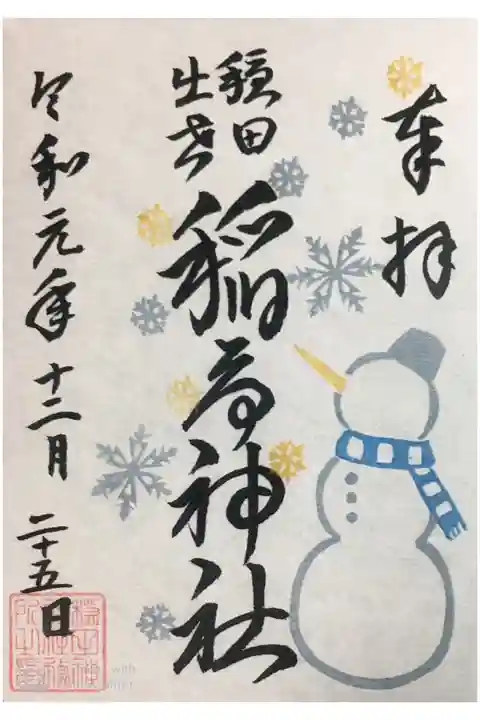 奉拝
穏田
出世
稲荷神社
令和元年十二月二十五日
with